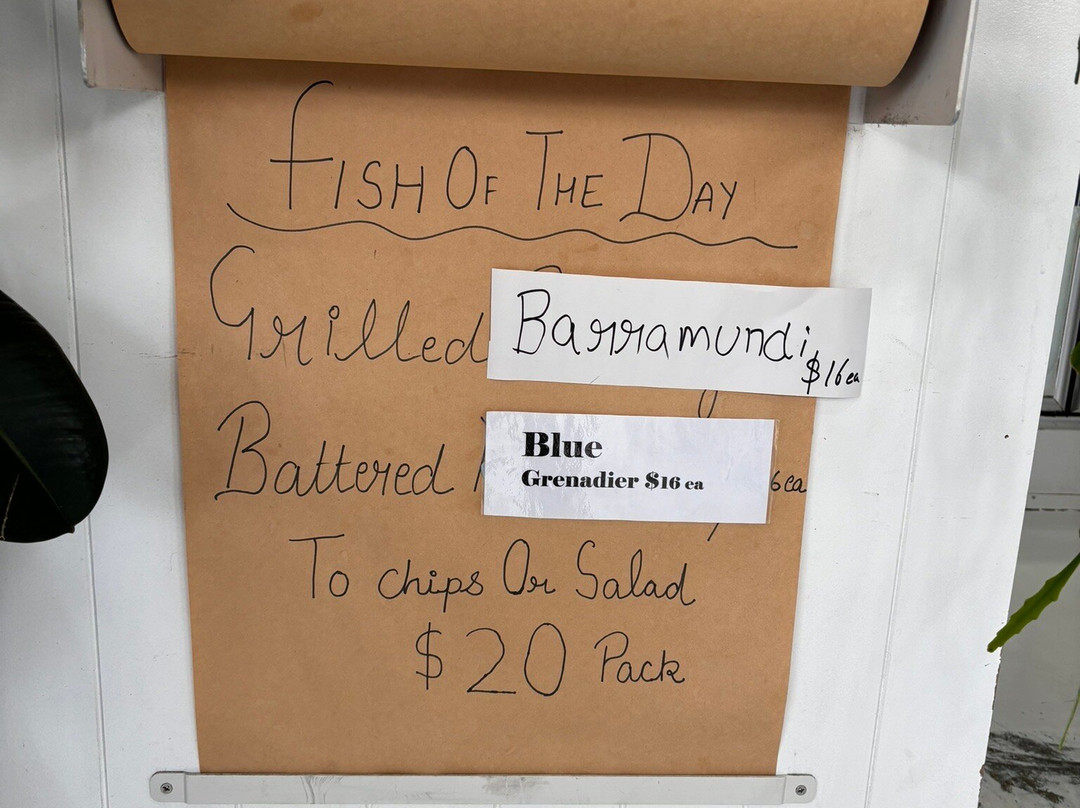 Fish Of The Day
Grilled Barramundi $16 ea
Battered Blue
Grenadier $16 ea
To chips Or Salad
$20 Pack